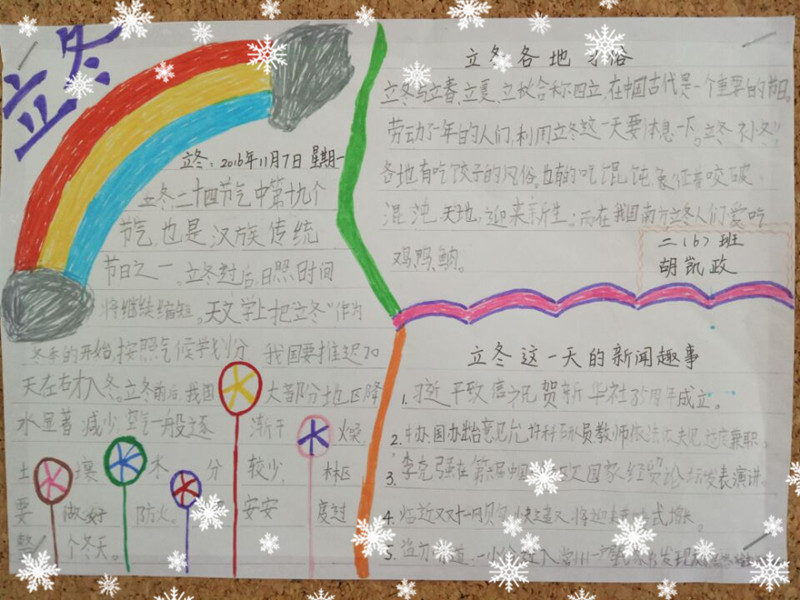 立冬
立冬：2016年11月7日 星期一
立冬二十四节气中第十九个
节气，也是汉族传统
节日之一。立冬过后，日照时间
将继续缩短。天文学上把"立冬"作为
冬季的开始，按照气候学划分，我国要推迟20
天左右才入冬。立冬前后，我国大部分地区降
水显著减少。空气一般逐渐干燥，
土壤水分较少，林区
要做好防火。安安度过
整个冬天。
立冬各地习俗
立冬与立春、立夏、立秋合称四立，在中国古代是一个重要的节日。
劳动了一年的人们，利用立冬这一天要休息一下。立冬
各地有吃饺子的风俗。吃馄饨象征着咬破
混沌天地，迎来新生；而在我国南方立冬人们爱吃
鸡鸭鱼肉。
二（6）班
胡凯政
立冬这一天的新闻趣事
1. 习近平致信祝贺新华社85周年成立。
2. 中办、国办出台意见允许科研人员教师依法依规适度兼职
3. 李克强在第 国家经贸论坛发表演讲。
4. 临近双十一网购，快递又将迎来 式增长。
5. 发现